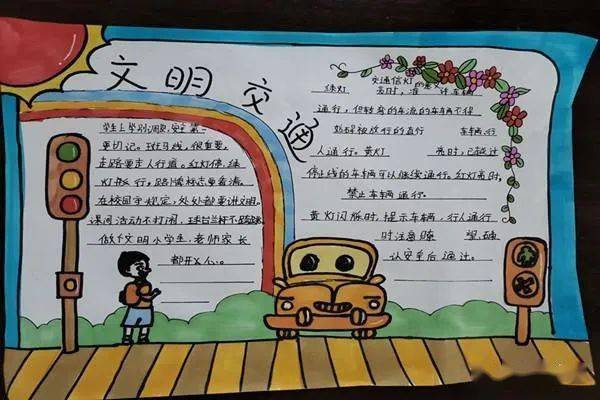 文明交通
学生上学别调皮,安全第一
要切记。斑马线,很重要,
走路要走人行道。红灯停,绿
灯行,路口标志要看清。
在校园守规定,处处都要讲文明。
课间活动不打闹,
做个文明小学生,老师家长
都开心。
绿灯 交通信灯
亮时,准 许车辆
通行,但转弯的车流的车辆不得
妨碍被放行的直行 车辆,行
人通行。黄灯 亮时,已越过
停止线的车辆可以继续通行。红灯亮时,
禁止车辆通行。
黄灯闪烁时,提示车辆,行人通行
时注意瞭 望,确
认安全后通过。